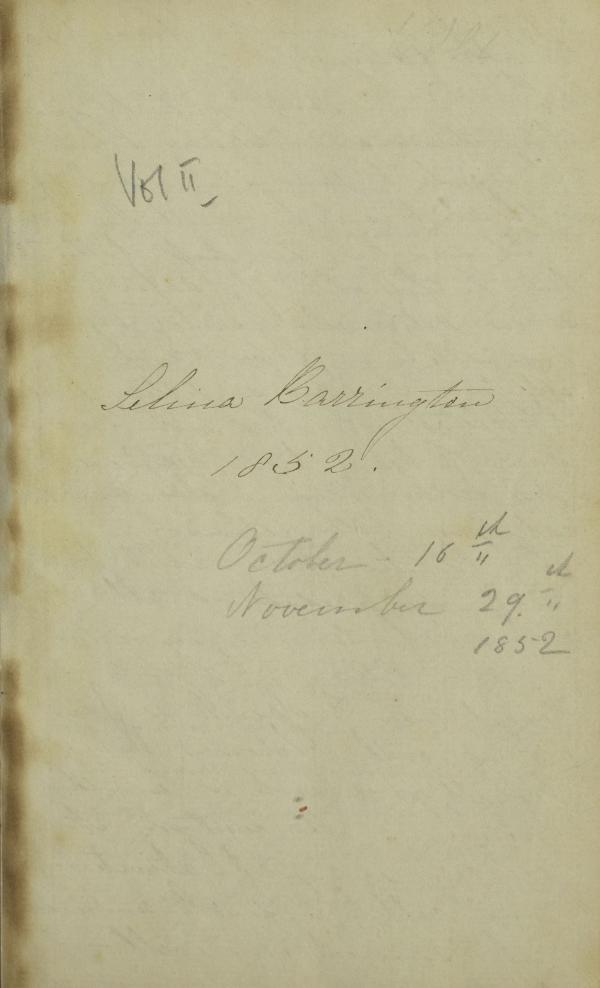 Vol II
Selina Barrington
1852.
October - 16th
November 29.th
1852